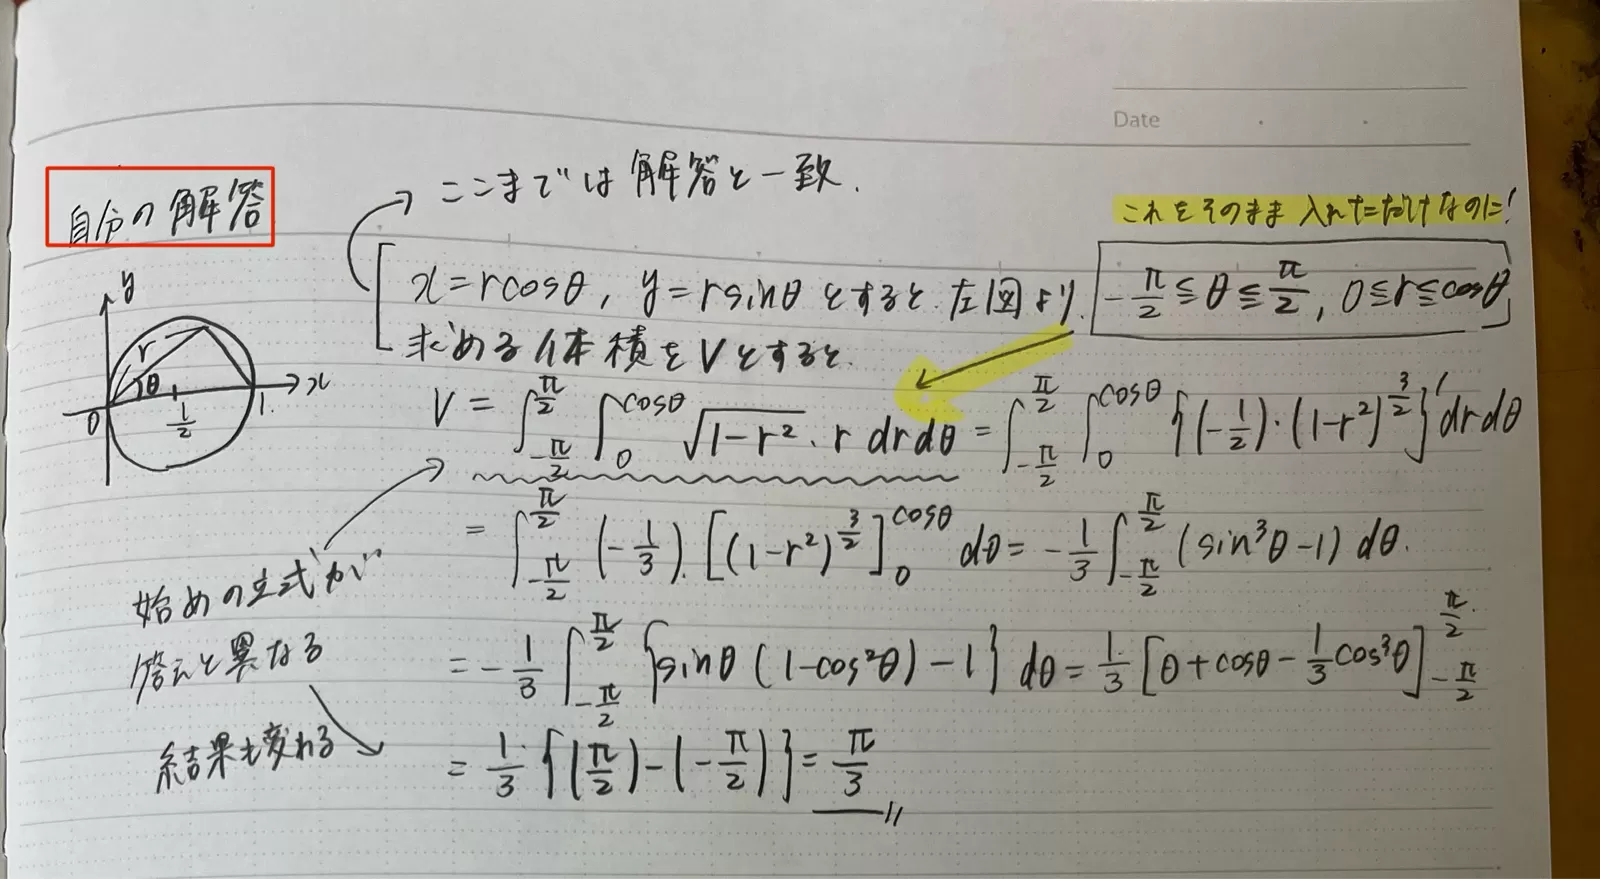 Date
自分の解答
ここまでは解答と一致.
これをそのまま入れただけなのに!
x=rcosθ, y=rsinθとすると. 左図より. -π/2≦θ≦π/2, 0≦r≦cosθ
求める体積をVとすると.
y
r
θ
x
0
1/2
1.
V = ∫_{-π/2}^{π/2} ∫_0^{cosθ} √(1-r²)・r dr dθ = ∫_{-π/2}^{π/2} ∫_0^{cosθ} {(-1/2)・(1-r²)^{3/2}}' dr dθ
= ∫_{-π/2}^{π/2} (-1/3)・[(1-r²)^{3/2}]_0^{cosθ} dθ = -1/3 ∫_{-π/2}^{π/2} (sin³θ-1) dθ.
= -1/3 ∫_{-π/2}^{π/2} {sinθ(1-cos²θ)-1} dθ = 1/3 [θ+cosθ-1/3 cos³θ]_{-π/2}^{π/2}
= 1/3 {(π/2)-(-π/2)} = π/3 //
始めの立式が
答えと異なる
結果も変わる